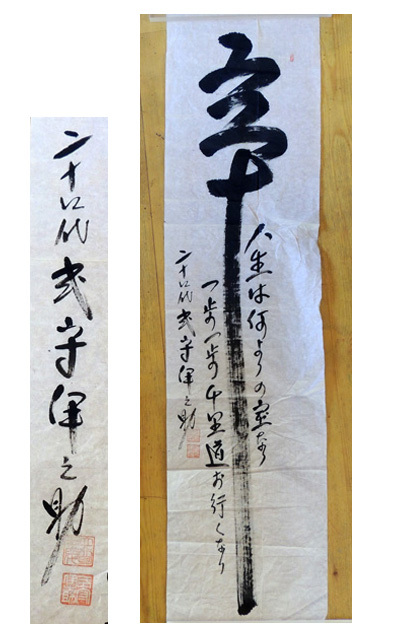 二十八代 式守伊之助
辛
人生は何よりの宝なり
一歩一歩千里道お行くなり
二十八代 式守伊之助